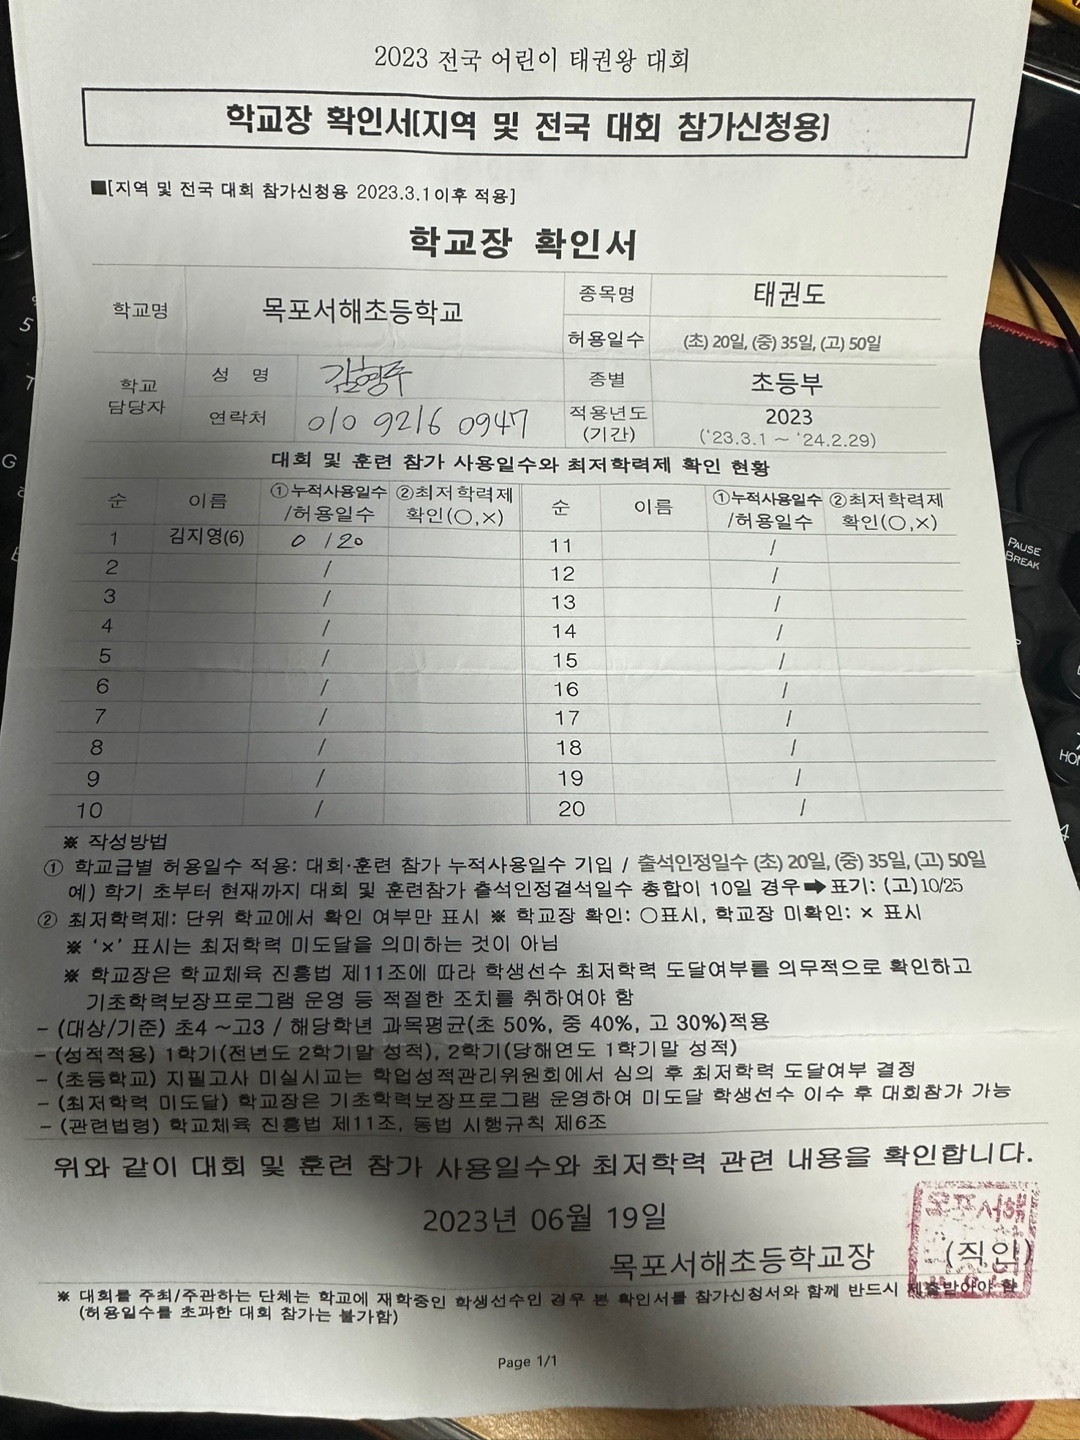 2023 전국 어린이 태권왕 대회
학교장 확인서(지역 및 전국 대회 참가신청용)
■[지역 및 전국 대회 참가신청용 2023.3.1이후 적용]
학교장 확인서
학교명 목포서해초등학교 종목명 태권도
허용일수 (초) 20일, (중) 35일, (고) 50일
학교 담당자 성 명 김형주 종별 초등부
연락처 010 9216 0947 적용년도 (기간) 2023 (‘23.3.1 ~ ‘24.2.29)
대회 및 훈련 참가 사용일수와 최저학력제 확인 현황
순 이름 ①누적사용일수 /허용일수 ②최저학력제 확인(○,×) 순 이름 ①누적사용일수 /허용일수 ②최저학력제 확인(○,×)
1 김지영(6) 0 / 20 11 /
2 / 12 /
3 / 13 /
4 / 14 /
5 / 15 /
6 / 16 /
7 / 17 /
8 / 18 /
9 / 19 /
10 / 20 /
※ 작성방법
① 학교급별 허용일수 적용: 대회·훈련 참가 누적사용일수 기입 / 출석인정일수 (초) 20일, (중) 35일, (고) 50일
예) 학기 초부터 현재까지 대회 및 훈련참가 출석인정결석일수 총합이 10일 경우➡표기: (고)10/25
② 최저학력제: 단위 학교에서 확인 여부만 표시 ※ 학교장 확인: ○표시, 학교장 미확인: × 표시
※ ‘×’ 표시는 최저학력 미도달을 의미하는 것이 아님
※ 학교장은 학교체육 진흥법 제11조에 따라 학생선수 최저학력 도달여부를 의무적으로 확인하고
기초학력보장프로그램 운영 등 적절한 조치를 취하여야 함
- (대상/기준) 초4 ~고3 / 해당학년 과목평균(초 50%, 중 40%, 고 30%)적용
- (성적적용) 1학기(전년도 2학기말 성적), 2학기(당해연도 1학기말 성적)
- (초등학교) 지필고사 미실시교는 학업성적관리위원회에서 심의 후 최저학력 도달여부 결정
- (최저학력 미도달) 학교장은 기초학력보장프로그램 운영하여 미도달 학생선수 이수 후 대회참가 가능
- (관련법령) 학교체육 진흥법 제11조, 동법 시행규칙 제6조
위와 같이 대회 및 훈련 참가 사용일수와 최저학력 관련 내용을 확인합니다.
2023년 06월 19일
목포서해
목포서해초등학교장 (직인)
※ 대회를 주최/주관하는 단체는 학교에 재학중인 학생선수인 경우 본 확인서를 참가신청서와 함께 반드시 제출받아야 함
(허용일수를 초과한 대회 참가는 불가함)
Page 1/1
5
G
PAUSE
BREAK
4